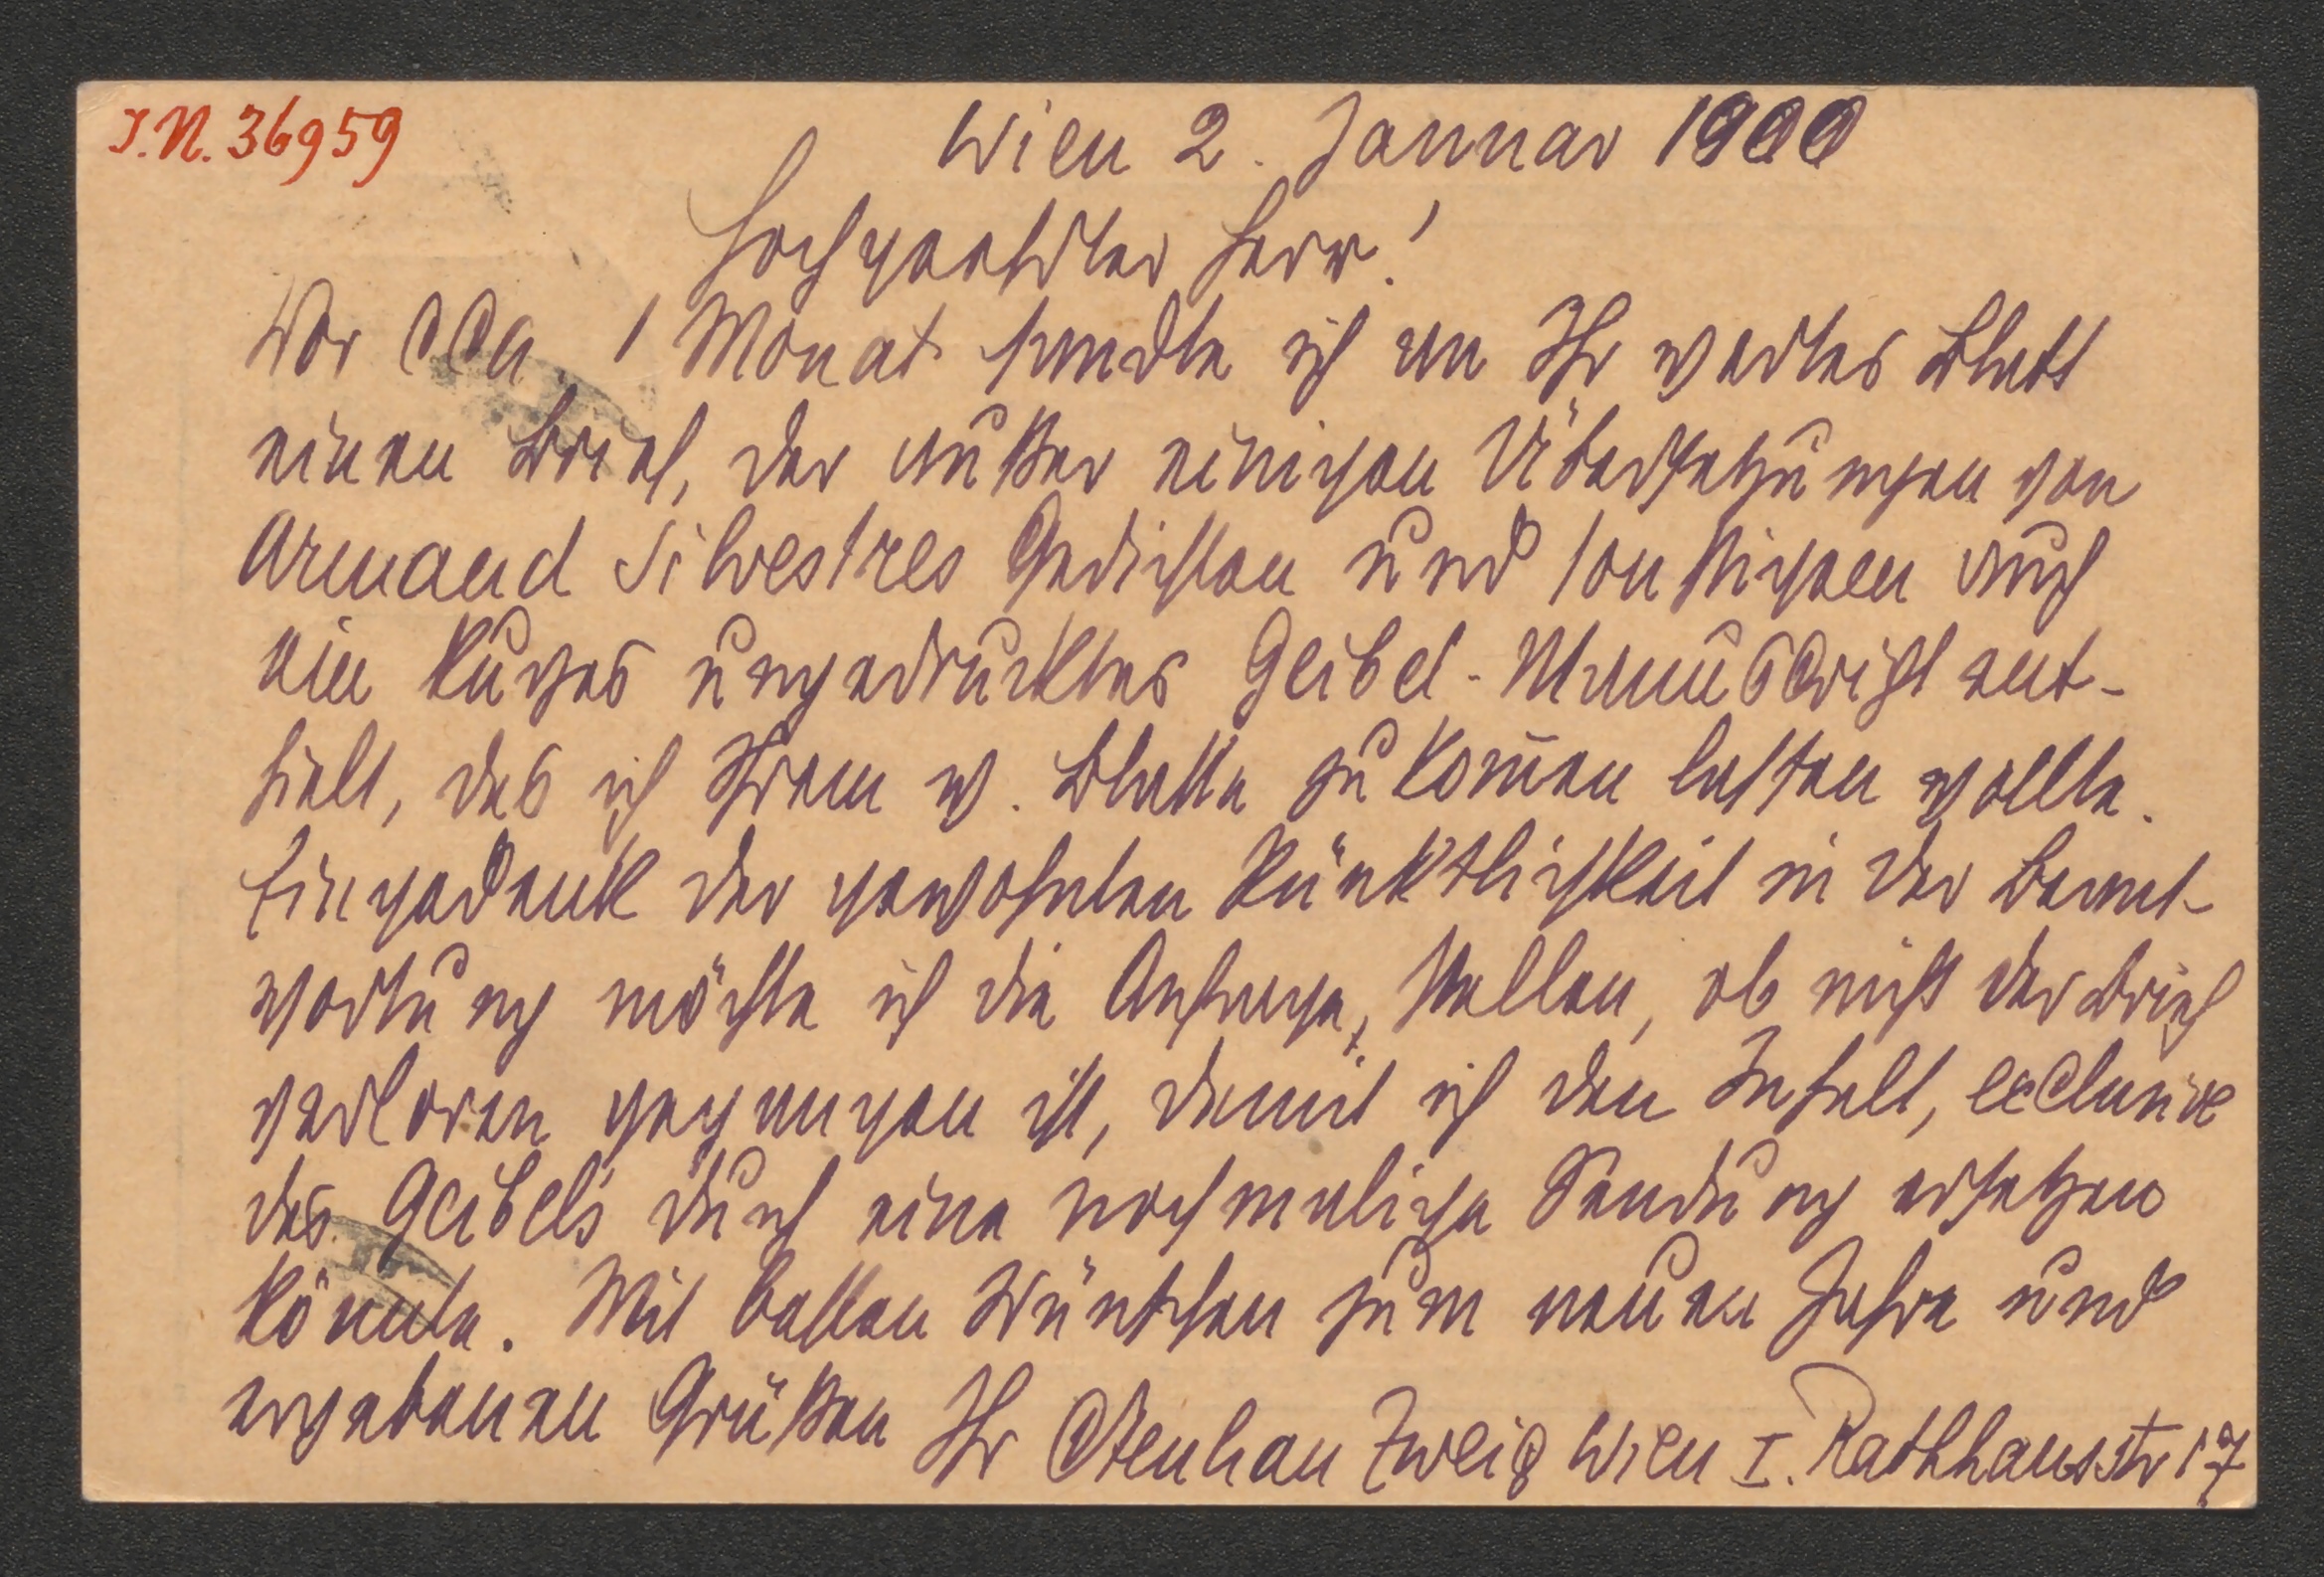 I.N. 36959
Wien 2. Januar 1900
Hochgeehrter Herr!
Vor cca. 1 Monat sandte ich an Ihr wertes Blatt
einen Brief, der außer einigen Übersetzungen von
Armand Silvestres Gedichten und sonstigem auch
ein kurzes ungedrucktes Geibel-Manuscript ent-
hielt, das ich Ihrem w. Blatte zukom̄en lassen wollte.
Eingedenk der gewohnten Pünktlichkeit in der Beant-
wortung möchte ich die Anfrage, stellen, ob nicht der Brief
verloren gegangen ist, damit ich den Inhalt, exclusive
des Geibels durch eine nochmalige Sendung ersetzen
könnte. Mit besten Wünschen zum neuen Jahre und
ergebenen Grüßen Ihr Stephan Zweig Wien I. Rathhausstr 17